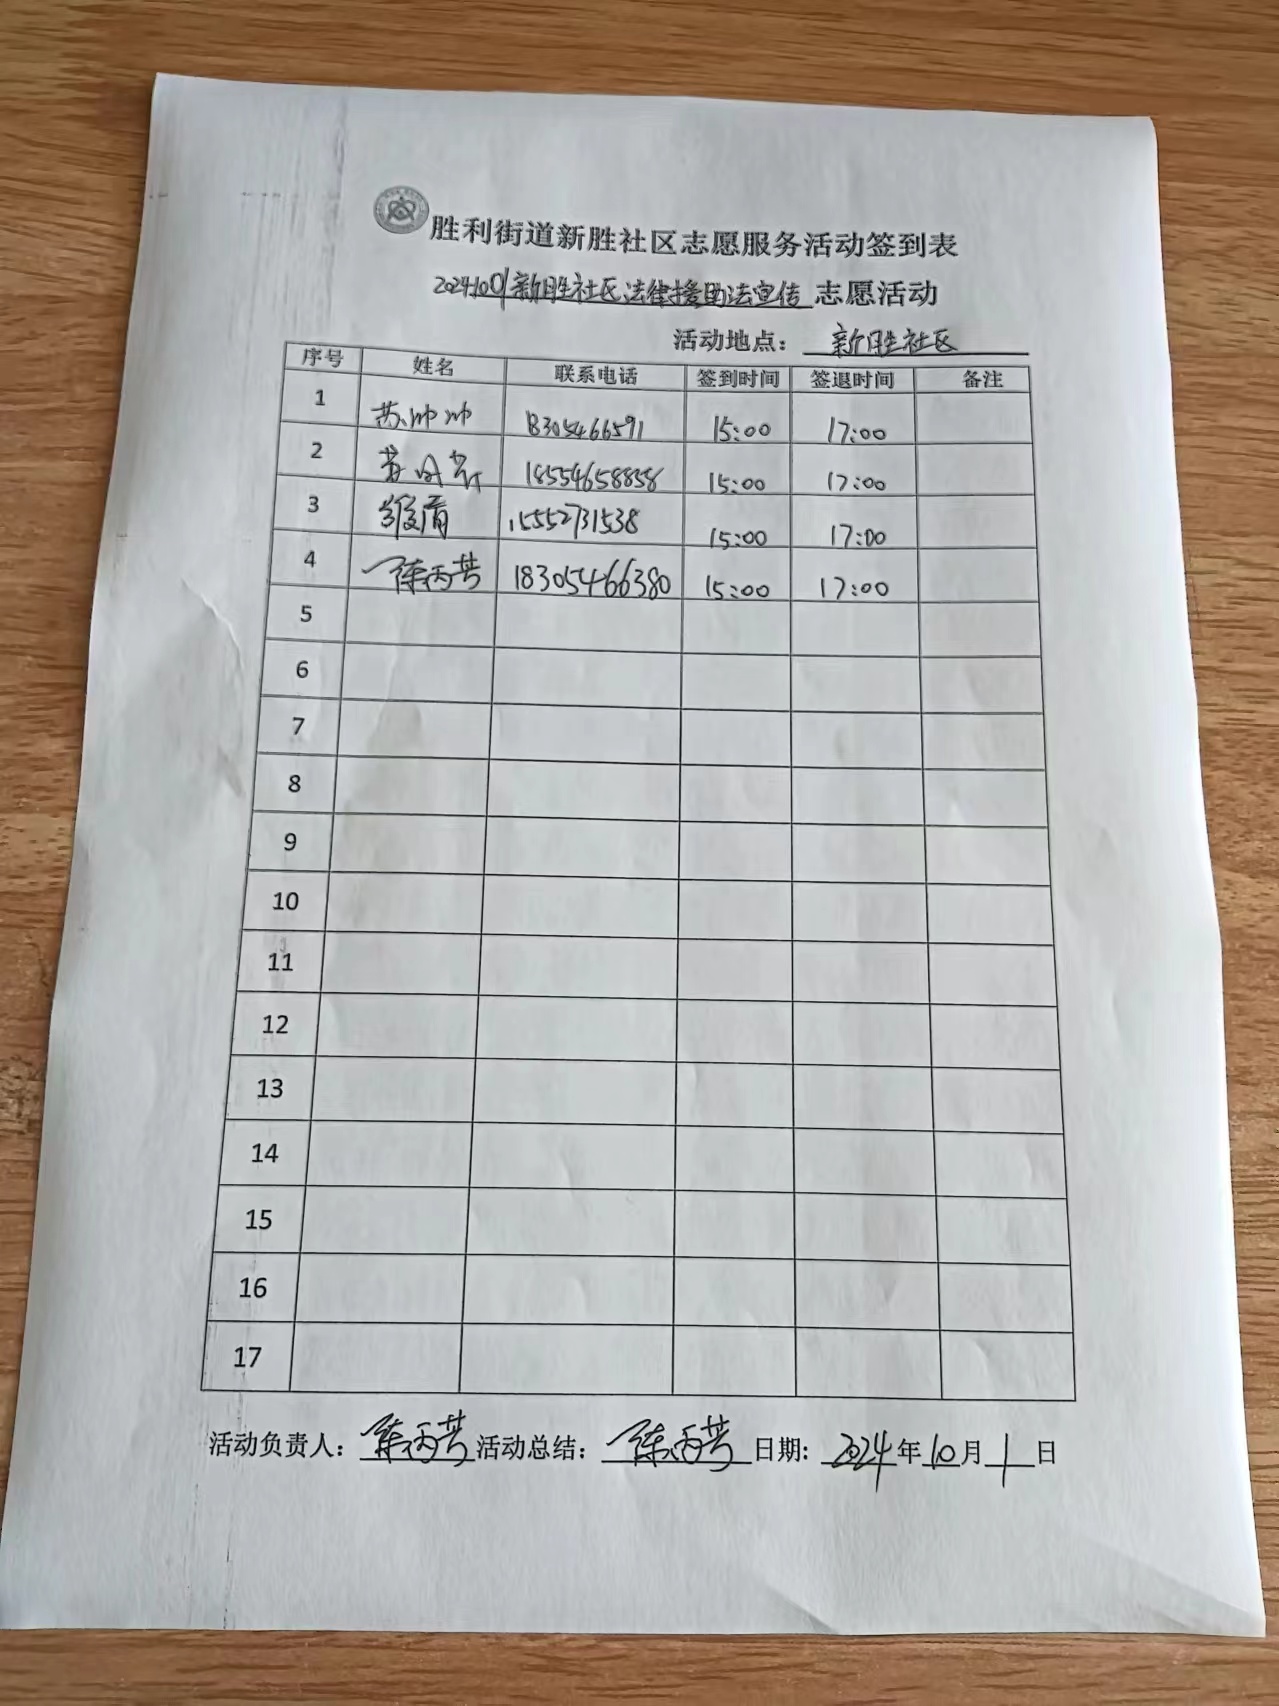 胜利街道新胜社区志愿服务活动签到表
20241001新胜社区法律援助法宣传 志愿活动
活动地点： 新胜社区
序号 姓名 联系电话 签到时间 签退时间 备注
1 苏帅帅 18305466591 15:00 17:00
2 18554658858 15:00 17:00
3 15552731538 15:00 17:00
4 陈丙芸 18305466380 15:00 17:00
5
6
7
8
9
10
11
12
13
14
15
16
17
活动负责人：陈丙芸 活动总结：陈丙芸 日期：2024年10月1日